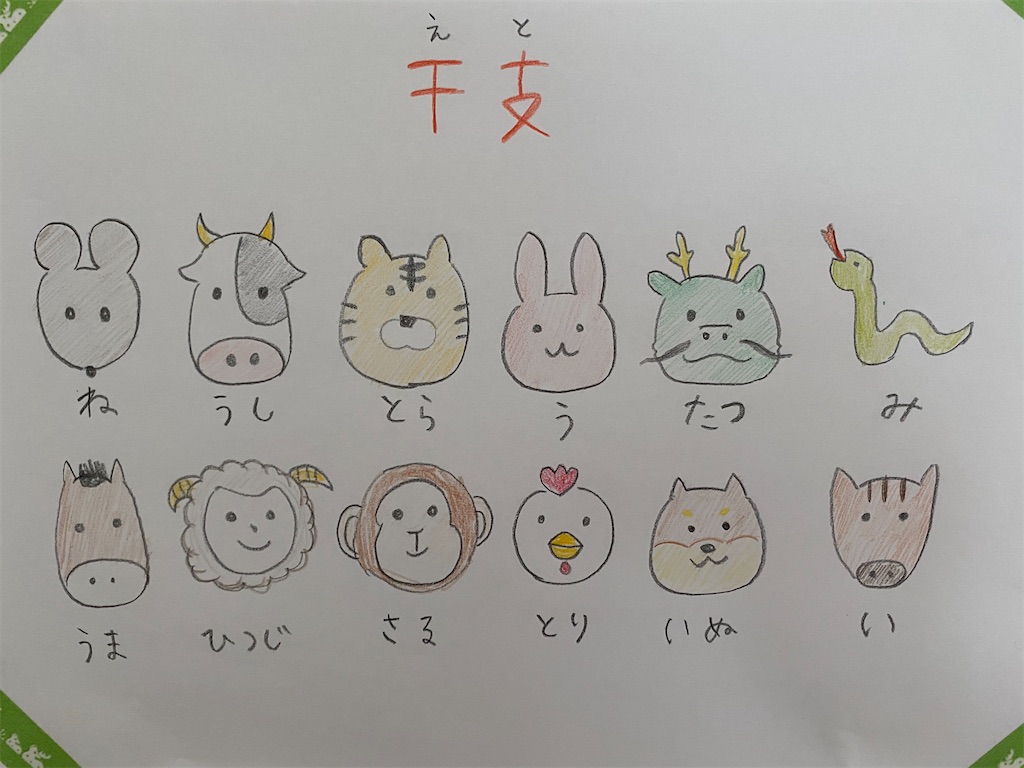 えと
干支
ね うし とら う たつ み
うま ひつじ さる とり いぬ い